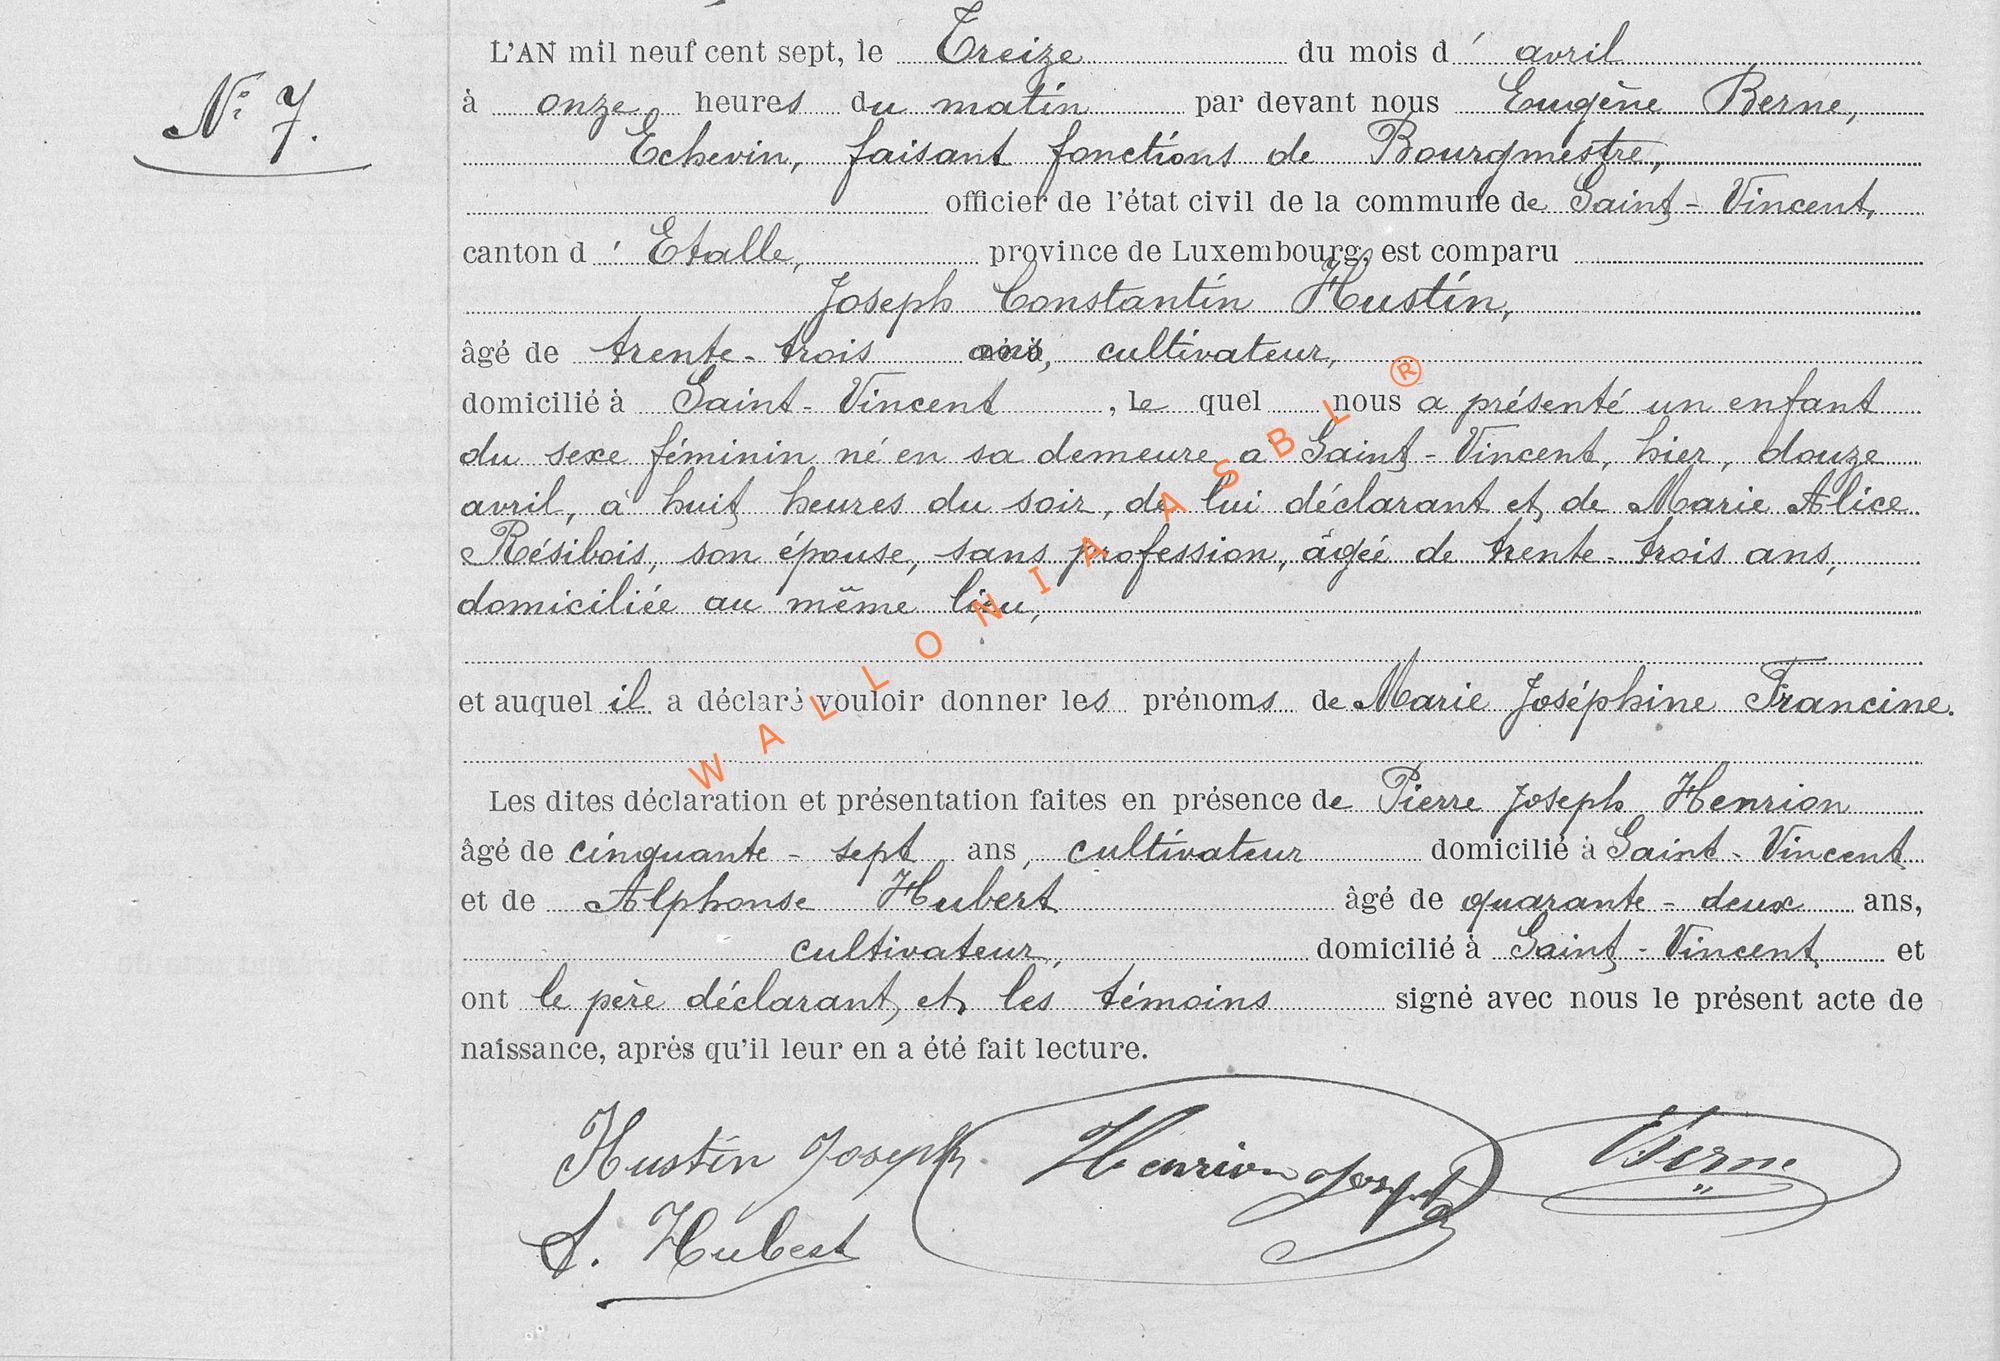 N° 7.
L'AN mil neuf cent sept, le Treize du mois d' avril
à onze heures du matin par devant nous Eugène Berne,
Echevin, faisant fonctions de Bourgmestre,
officier de l'état civil de la commune de Saint-Vincent,
canton d' Etalle, province de Luxembourg, est comparu
Joseph Constantin Hustin,
âgé de trente-trois ans, cultivateur,
domicilié à Saint-Vincent, le quel nous a présenté un enfant
du sexe féminin né en sa demeure à Saint-Vincent, hier, douze
avril, à huit heures du soir, de lui déclarant et de Marie Alice
Résibois, son épouse, sans profession, âgée de trente-trois ans,
domiciliée au même lieu,
et auquel il a déclaré vouloir donner les prénoms de Marie Joséphine Francine.
Les dites déclaration et présentation faites en présence de Pierre Joseph Henrion
âgé de cinquante-sept ans, cultivateur domicilié à Saint-Vincent
et de Alphonse Hubert âgé de quarante-deux ans,
cultivateur, domicilié à Saint-Vincent et
ont le père déclarant et les témoins signé avec nous le présent acte de
naissance, après qu'il leur en a été fait lecture.
Hustin Joseph. Henrion Joseph EBerne
A. Hubert
WALLONIA ASBL ®